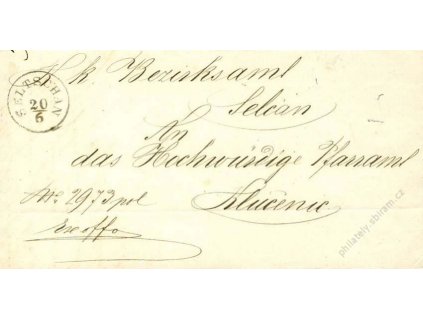 K. k. Bezirksamt
Selčan
SELTSCHAN
20/6
An
das Hochwürdige Pfarramt
Nr. 2973 pol
Klučenic
Exoffo
philately.sbiram.cz